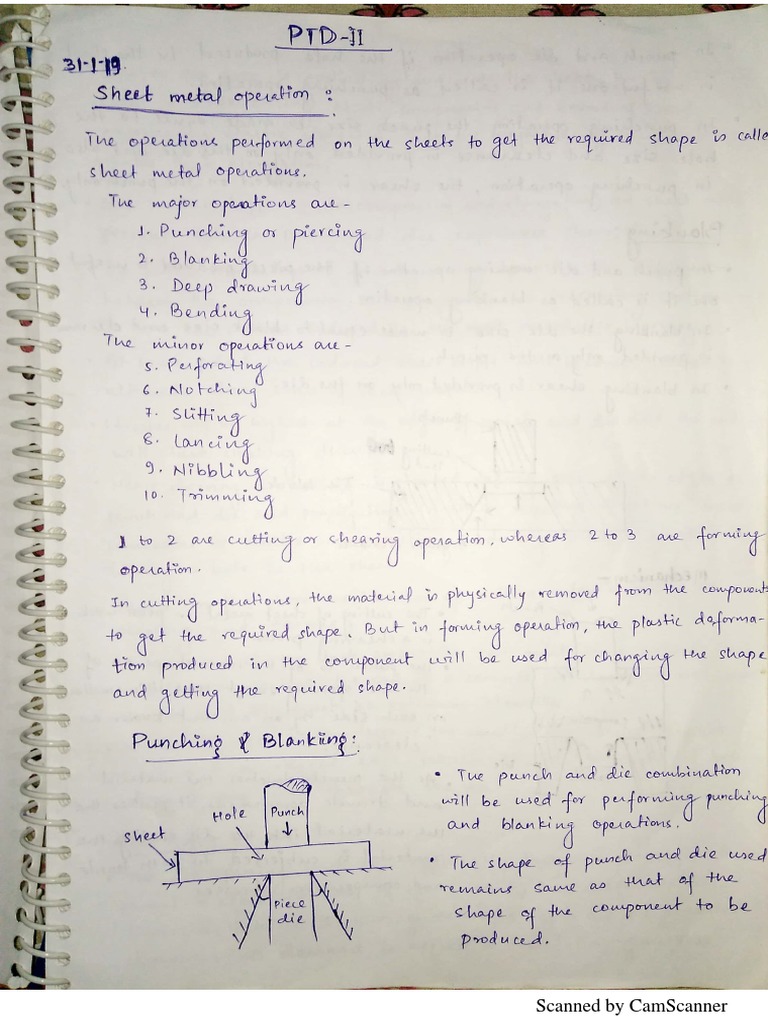 PTD-II
31-1-19
Sheet metal operation :
The operations performed on the sheets to get the required shape is calle
sheet metal operations.
The major operations are -
1. Punching or piercing
2. Blanking
3. Deep drawing
4. Bending
The minor operations are -
5. Perforating
6. Notching
7. Slitting
8. Lancing
9. Nibbling
10. Trimming
1 to 2 are cutting or shearing operation, whereas 2 to 3 are forming
operation.
In cutting operations, the material is physically removed from the component
to get the required shape. But in forming operation, the plastic deforma-
tion produced in the component will be used for changing the shape
and getting the required shape.
Punching & Blanking:
Sheet
Hole
Punch
Piece
die
• The punch and die combination
will be used for performing punching
and blanking operations.
• The shape of punch and die used
remains same as that of the
shape of the component to be
produced.
Scanned by CamScanner